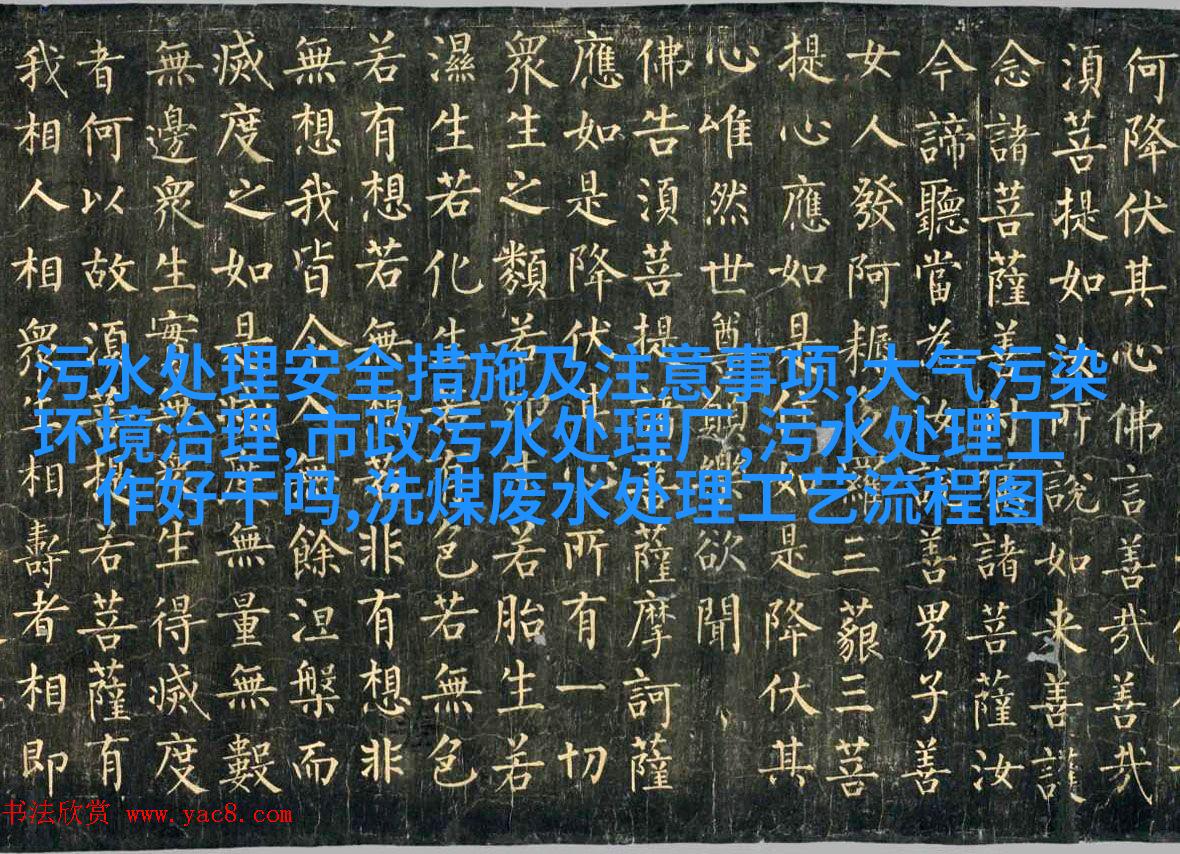 何降伏其心佛言善哉善哉
須菩提如汝所說如来善護
念諸菩薩善付囑諸菩薩汝
今諦聽當為汝說善男子善
女人發阿耨多羅三藐三菩
提心應如是住如是降伏其
心唯然世尊願樂欲聞
佛告須菩提諸菩薩摩訶薩
應如是降伏其心所有一切
眾生之類若卵生若胎生若
濕生若化生若有色若無色
若有想若無想若非有想非
無想我皆令入無餘涅槃而
滅度之如是滅度無量無數
無邊眾生實無眾生得滅度
者何以故須菩提若菩薩有
我相人相眾生相壽者相即
污水处理安全措施及注意事项,大气污染
环境治理,市政污水处理厂,污水处理工
作好干吗,洗煤废水处理工艺流程图
书法欣赏 www.yac8.com